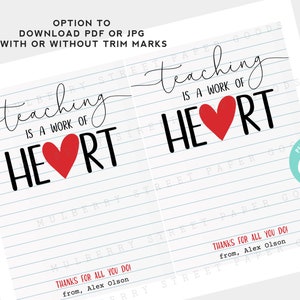 OPTION TO
DOWNLOAD PDF OR JPG
WITH OR WITHOUT TRIM MARKS
teaching
IS A WORK OF
HE♥RT
THANKS FOR ALL YOU DO!
from, Alex Olson
teaching
IS A WORK OF
HE♥RT
THANKS FOR ALL YOU DO!
from, Alex Olson
MULBERRY STREET PAPER